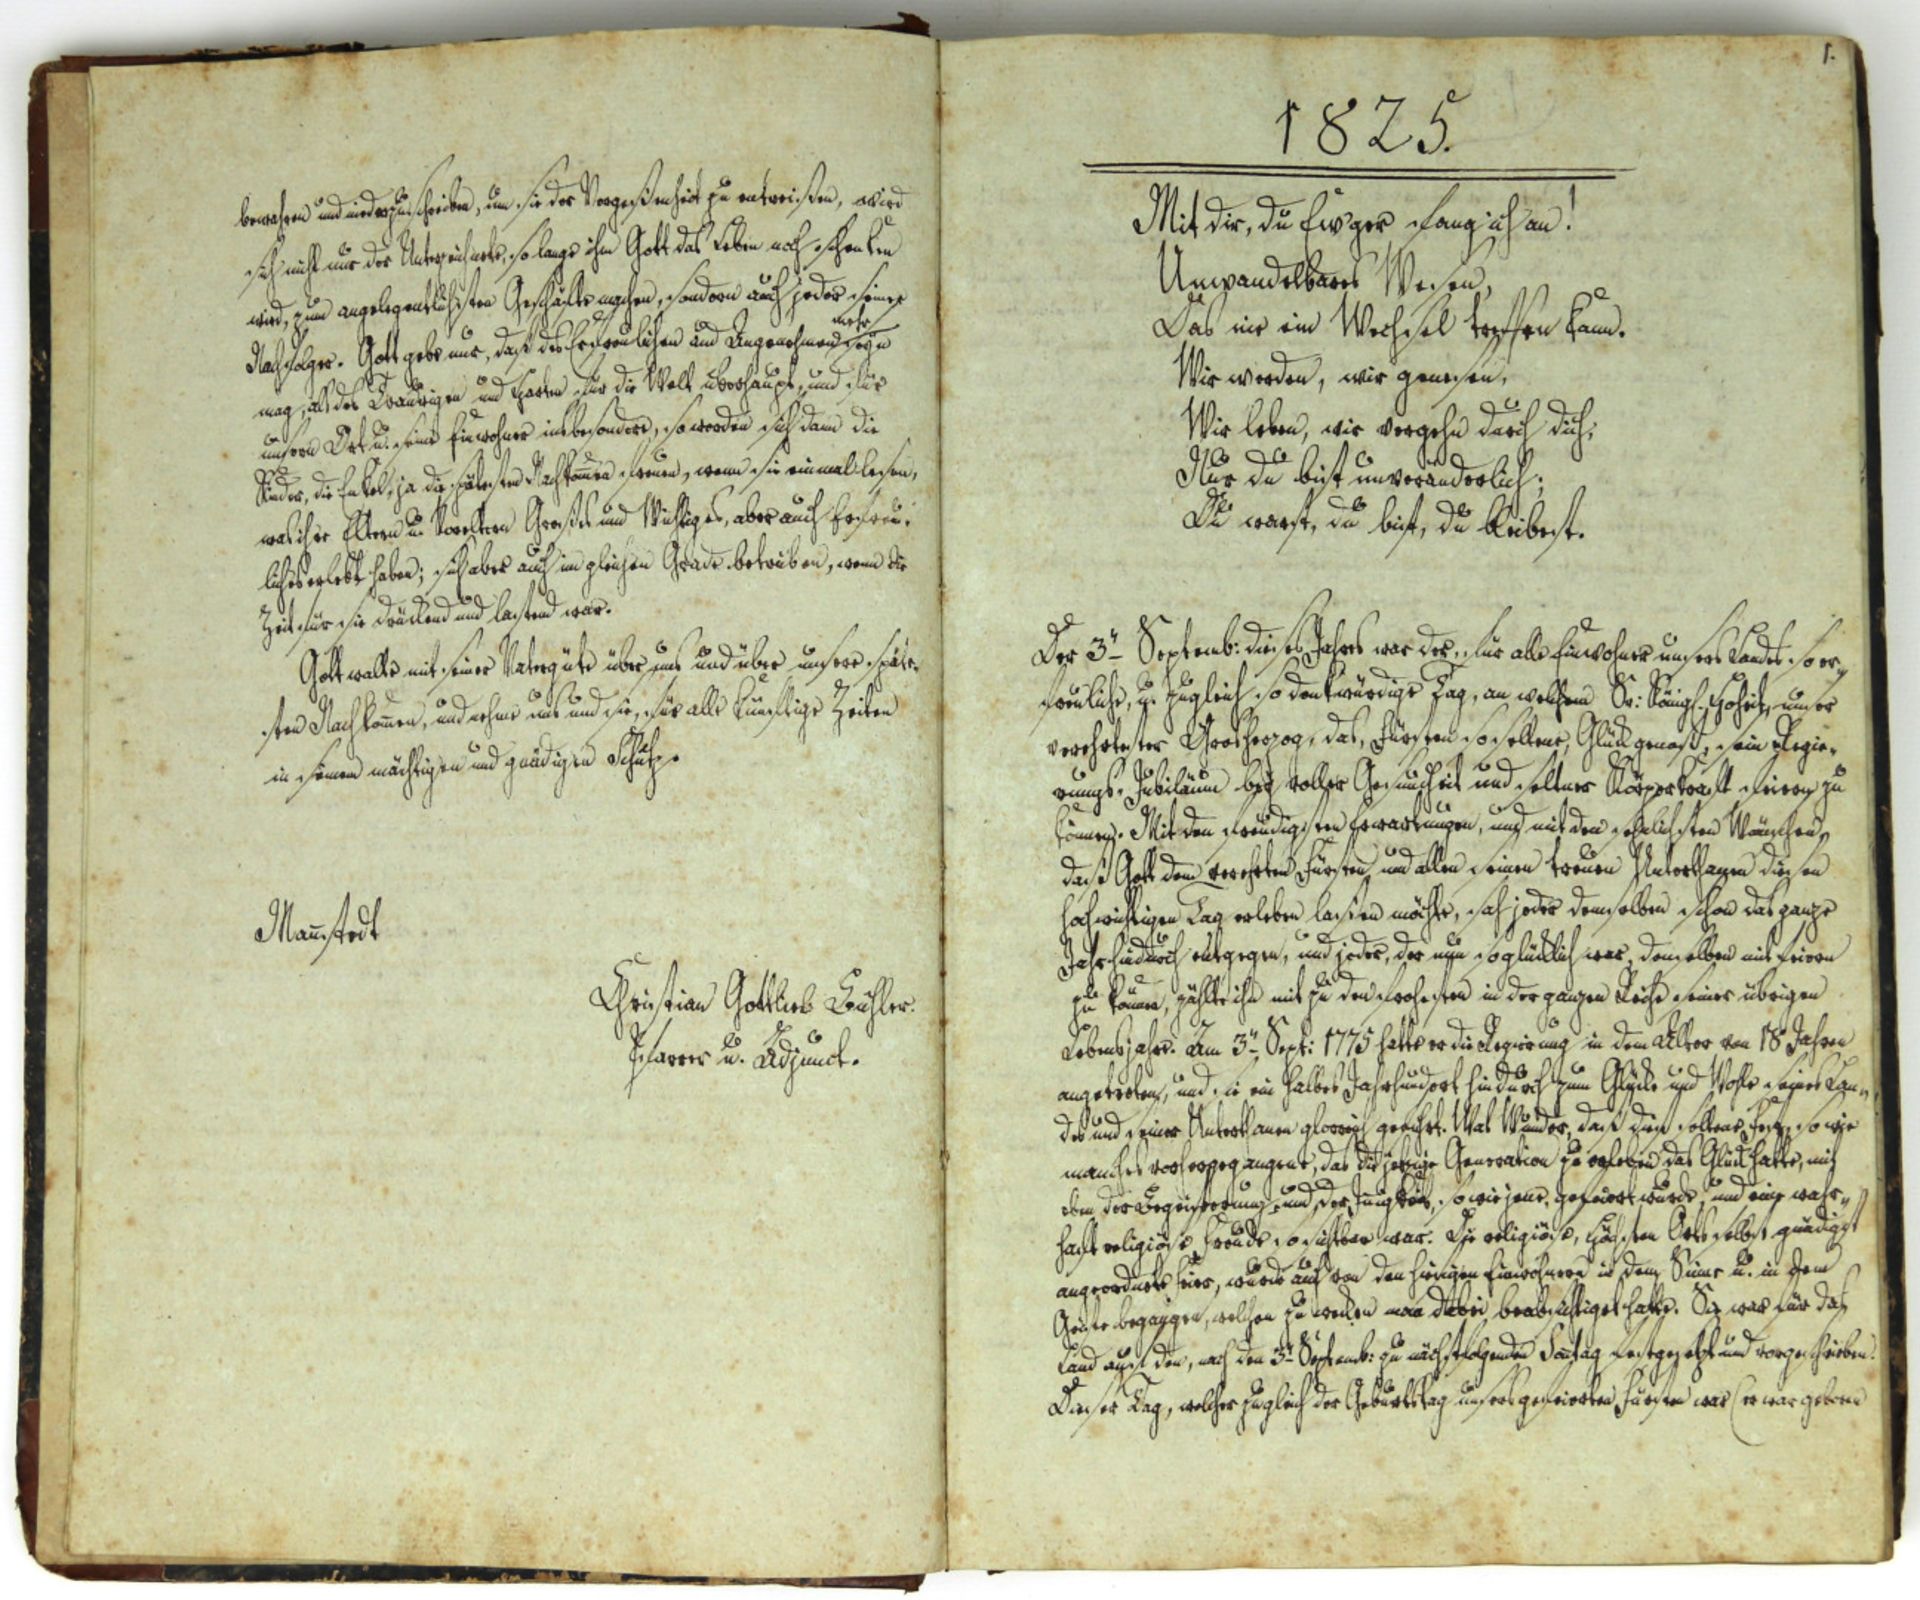 bewahren und niederzuschreiben, um sie der Vergeßenheit zu entreißen, wird
sich nicht nur der Unterzeichnete, so lange ihm Gott das Leben noch schenken
wird, zum angelegentlichsten Geschäfte machen, sondern auch jeder seiner
Nachfolger. Gott gebe nur, daß des Erfreulichen und Angenehmen mehr seyn
mag, als des Traurigen und Harten für die Welt überhaupt, und für
unsern Ort u. seine Einwohner insbesondere, so werden sich dann die
Kinder, die Enkel, ja die spätesten Nachkom̄en freuen, wenn sie einmal lesen,
was ihre Eltern u. Voreltern Großes und Wichtiges, aber auch Erfreu-
liches erlebt haben; sich aber auch im gleichen Grade betrüben, wenn die
Zeit für sie drückend und lastend war.
Gott walte mit seiner Vatergüte über uns und über unsere späte-
sten Nachkom̄en, und nehme uns und sie, für alle künftige Zeiten
in seinen mächtigen und gnädigen Schutz.
Man̄stedt
Christian Gottlieb Bühler.
Pfarrer u. Adjunct.
1.
1825.
Mit dir, du Ew'ger fang ich an!
Unwandelbares Wesen,
Das nie ein Wechsel treffen kann.
Wir werden, wir genesen,
Wir leben, wir vergehn durch dich;
Nur du bist unveränderlich;
Du warst, du bist, du bleibest.
Der 3n Septemb: dieses Jahres war der, für alle Einwohner unsers Landes so er-
freuliche, u. zugleich so denkwürdige Tag, an welchem Sr: Königl. Hoheit, unser
verehrtester Grosherzog, das, Fürsten so seltene, Glück genoß, sein Regie-
rungs-Jubiläum bey voller Gesundheit und seltner Körperkraft feiern zu
können. Mit den freudigsten Erwartungen, und mit den sehnlichsten Wünschen,
daß Gott dem verehrten Fürsten und allen seinen treuen Unterthanen diesen
hochwichtigen Tag erleben laßen möchte, sah jeder demselben schon das ganze
Jahr hindurch entgegen, und jeder, der nun so glücklich war, denselben mit feiern
zu können, zählte ihn mit zu den frohesten in der ganzen Reihe seiner übrigen
Lebensjahre. Am 3n Sept: 1775 hatte er die Regierung in dem Alter von 18 Jahren
angetreten, und sie ein halbes Jahrhundert hindurch zum Glücke und Wohle seines Lan-
des und seiner Unterthanen glorreich geführt. Was Wunder, daß dies seltene Fest, so wie
manches vorhergegangene, das die jetzige Generation zu erleben das Glück hatte, mit
eben der Begeisterung und der Innigkeit, so wie jene, gefeiert wurde, und eine wahr-
haft religiöse Freude so sichtbar war. Die religiöse, höchsten Orts selbst gnädigst
angeordnete Feier, wurde auch von den hiesigen Einwohnern in dem Sinne u. in dem
Geiste begangen, welchen zu wecken man dabei beabsichtiget hatte. Sie war für das
Land auf den, nach den 3n Septemb: zu nächstfolgenden Son̄tag festgesetzt und vorgeschrieben.
Dieser Tag, welcher zugleich der Geburtstag unsers gefeierten Fürsten war (er war geboren